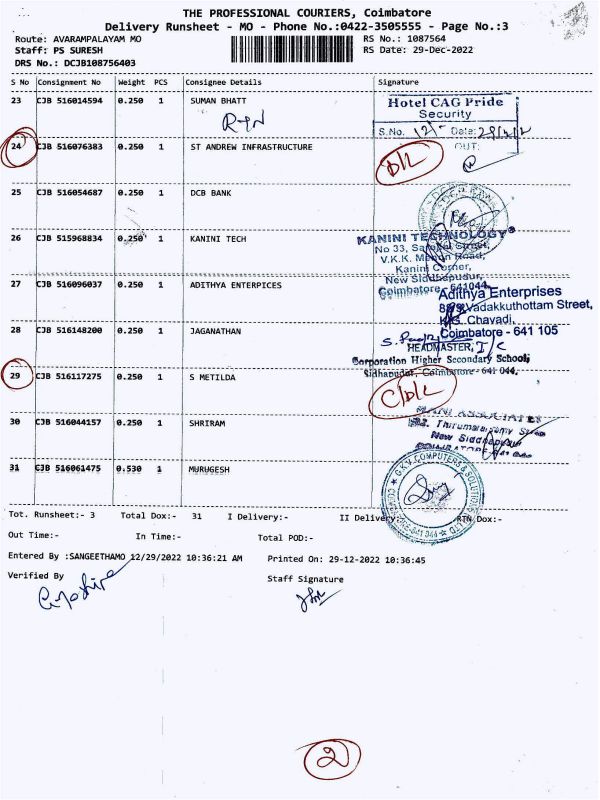 THE PROFESSIONAL COURIERS, Coimbatore
Delivery Runsheet - MO - Phone No.:0422-3505555 - Page No.:3
Route: AVARAMPALAYAM MO
RS No.: 1087564
Staff: PS SURESH
RS Date: 29-Dec-2022
DRS No.: DCJB108756403
S No Consignment No Weight PCS Consignee Details Signature
23 CJB 516014594 0.250 1 SUMAN BHATT
Hotel CAG Pride
Security
S.No. 121- Date:
OUT:
24 CJB 516076383 0.250 1 ST ANDREW INFRASTRUCTURE
D/L
25 CJB 516054687 0.250 1 DCB BANK
DCB BANK
26 CJB 515968834 0.250 1 KANINI TECH
KANINI TECHNOLOGY
No 33, Street,
V.K.K. Menon Road,
Kanini Corner,
New Siddhapudur,
Coimbatore - 641044.
27 CJB 516096037 0.250 1 ADITHYA ENTERPICES
Adithya Enterprises
Vadakkuthottam Street,
Chavadi,
Coimbatore - 641 105
28 CJB 516148200 0.250 1 JAGANATHAN
HEADMASTER, I/C
Corporation Higher Secondary School,
Sidhapudur, Coimbatore - 641 044.
29 CJB 516117275 0.250 1 S METILDA
C/D/L
30 CJB 516044157 0.250 1 SHRIRAM
MANI ASSOCIATES
New Siddhapudur
31 CJB 516061475 0.530 1 MURUGESH
G.K.V. COMPUTERS & SOLUTIONS
Tot. Runsheet:- 3 Total Dox:- 31 I Delivery:- II Delivery:- RTN Dox:-
Out Time:- In Time:- Total POD:-
Entered By :SANGEETHAMO 12/29/2022 10:36:21 AM Printed On: 29-12-2022 10:36:45
Verified By
Staff Signature
2